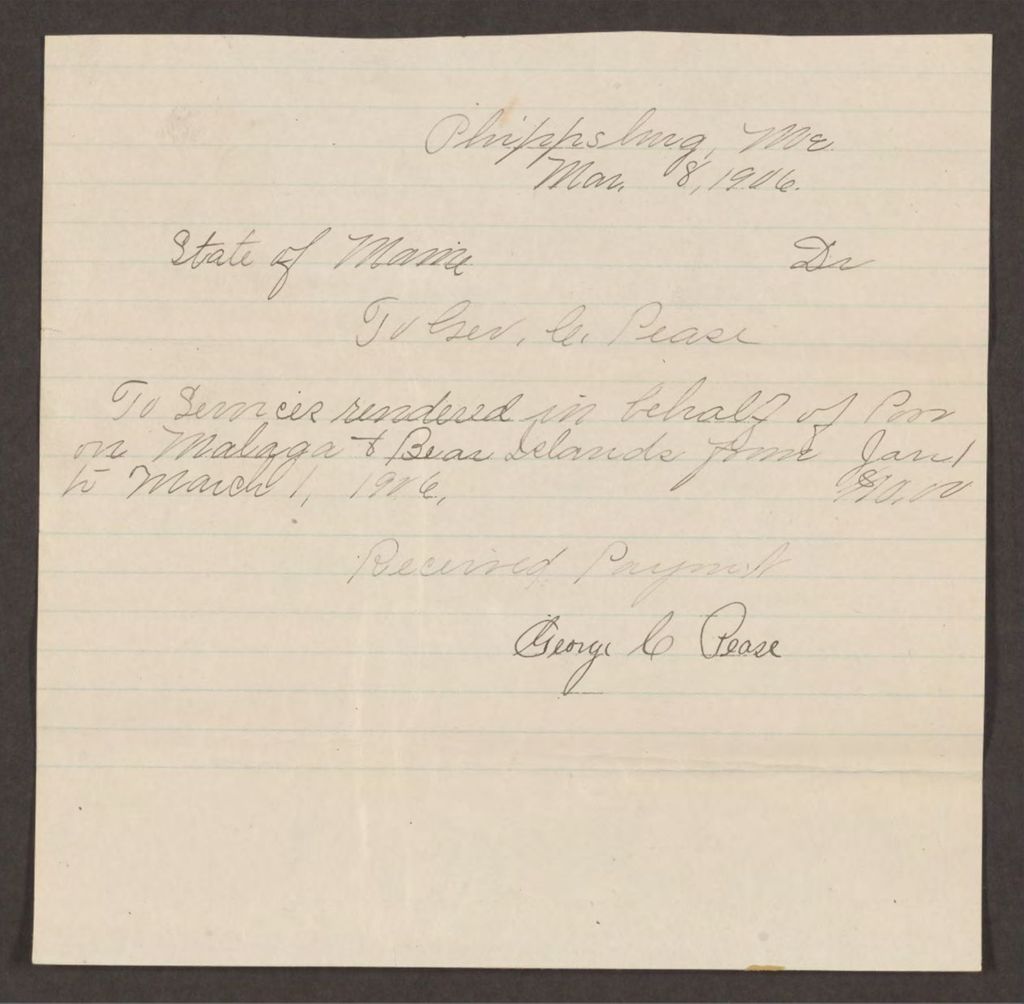 Phippsburg, Me.
Mar. 8, 1906.
State of Maine Dr
To Geo. C. Pease
To Services rendered in behalf of Poor
on Malaga & Bear Islands from Jan 1
to March 1, 1906.
Received Payment
George C Pease